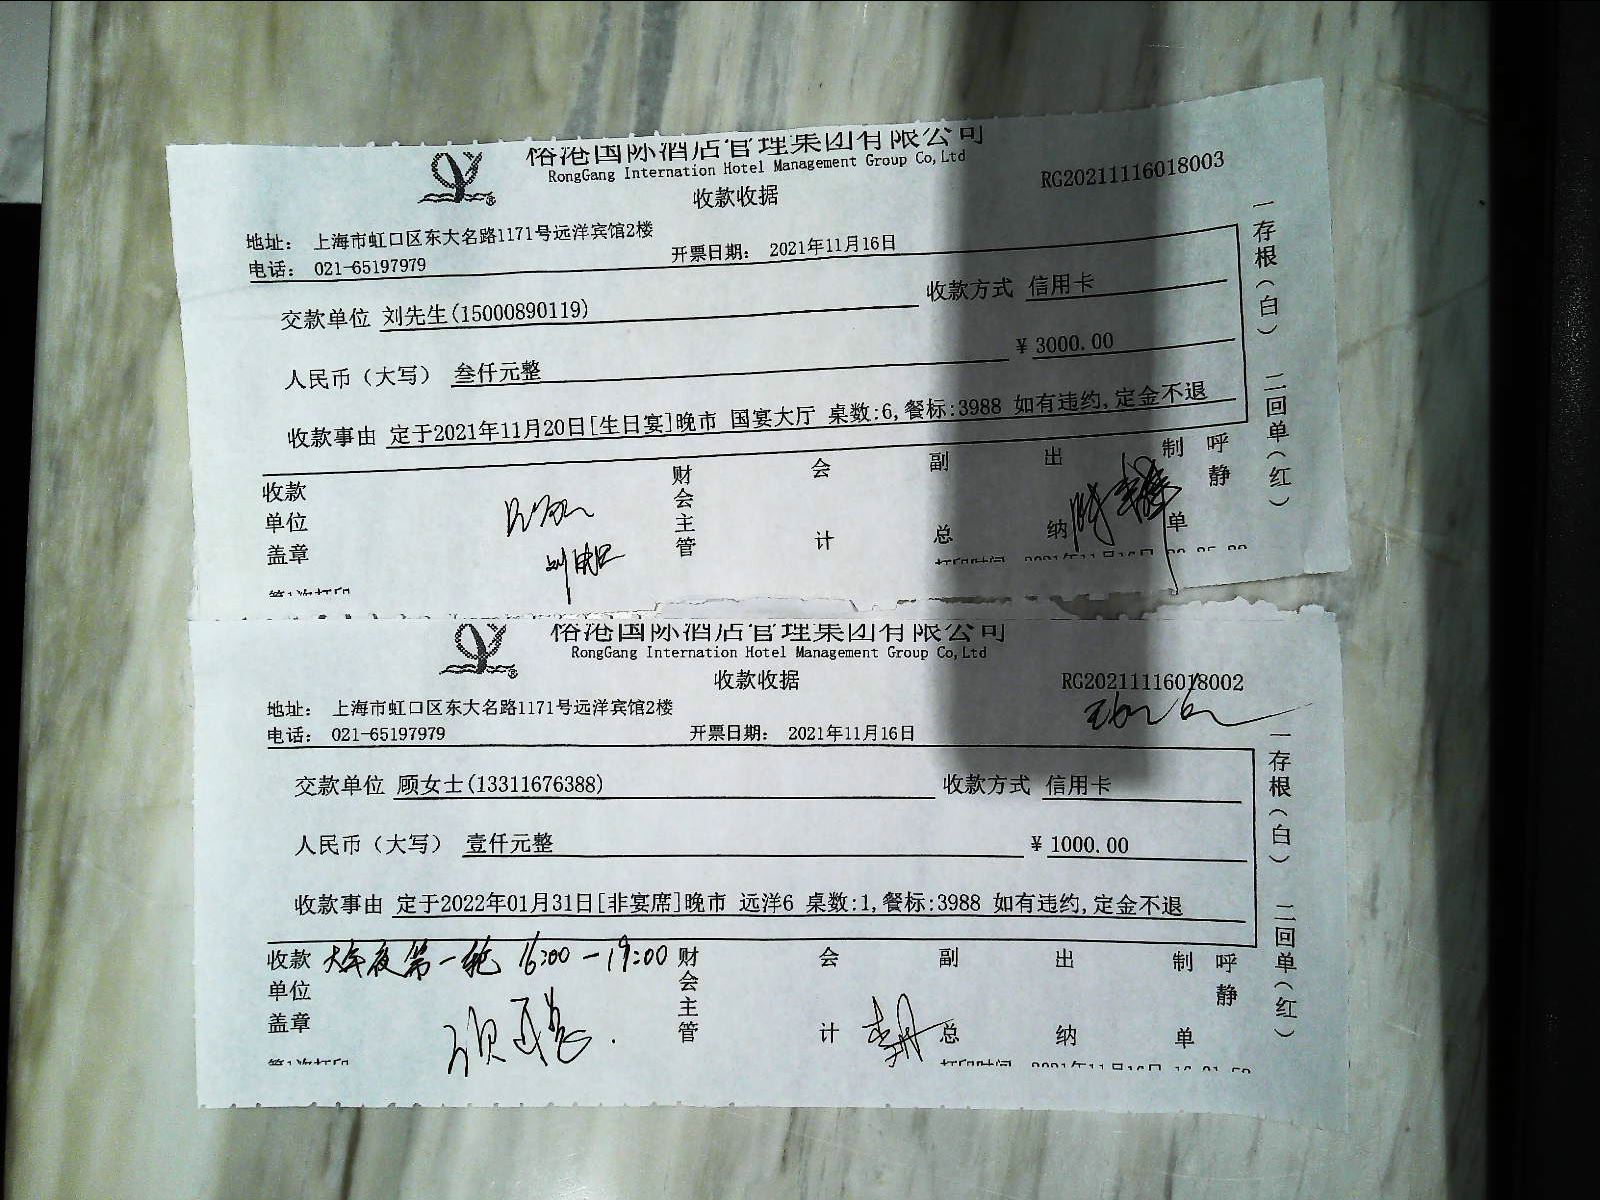 榕港国际酒店管理集团有限公司
RongGang International Hotel Management Group Co,Ltd
收款收据
RG20211116018003
地址： 上海市虹口区东大名路1171号远洋宾馆2楼
电话： 021-65197979
开票日期： 2021年11月16日
交款单位 刘先生(15000890119)
收款方式 信用卡
人民币（大写） 叁仟元整
¥ 3000.00
收款事由 定于2021年11月20日[生日宴]晚市 国宴大厅 桌数:6,餐标:3988 如有违约,定金不退
收款单位盖章
财会主管
会计
副总
出纳
制单
呼静
一存根（白） 二回单（红）
第1次打印
打印时间 2021年11月16日
榕港国际酒店管理集团有限公司
RongGang International Hotel Management Group Co,Ltd
收款收据
RG20211116018002
地址： 上海市虹口区东大名路1171号远洋宾馆2楼
电话： 021-65197979
开票日期： 2021年11月16日
交款单位 顾女士(13311676388)
收款方式 信用卡
人民币（大写） 壹仟元整
¥ 1000.00
收款事由 定于2022年01月31日[非宴席]晚市 远洋6 桌数:1,餐标:3988 如有违约,定金不退
收款单位盖章
大年夜第一轮 16:00-19:00
财会主管
会计
副总
出纳
制单
呼静
一存根（白） 二回单（红）
第1次打印
打印时间 2021年11月16日